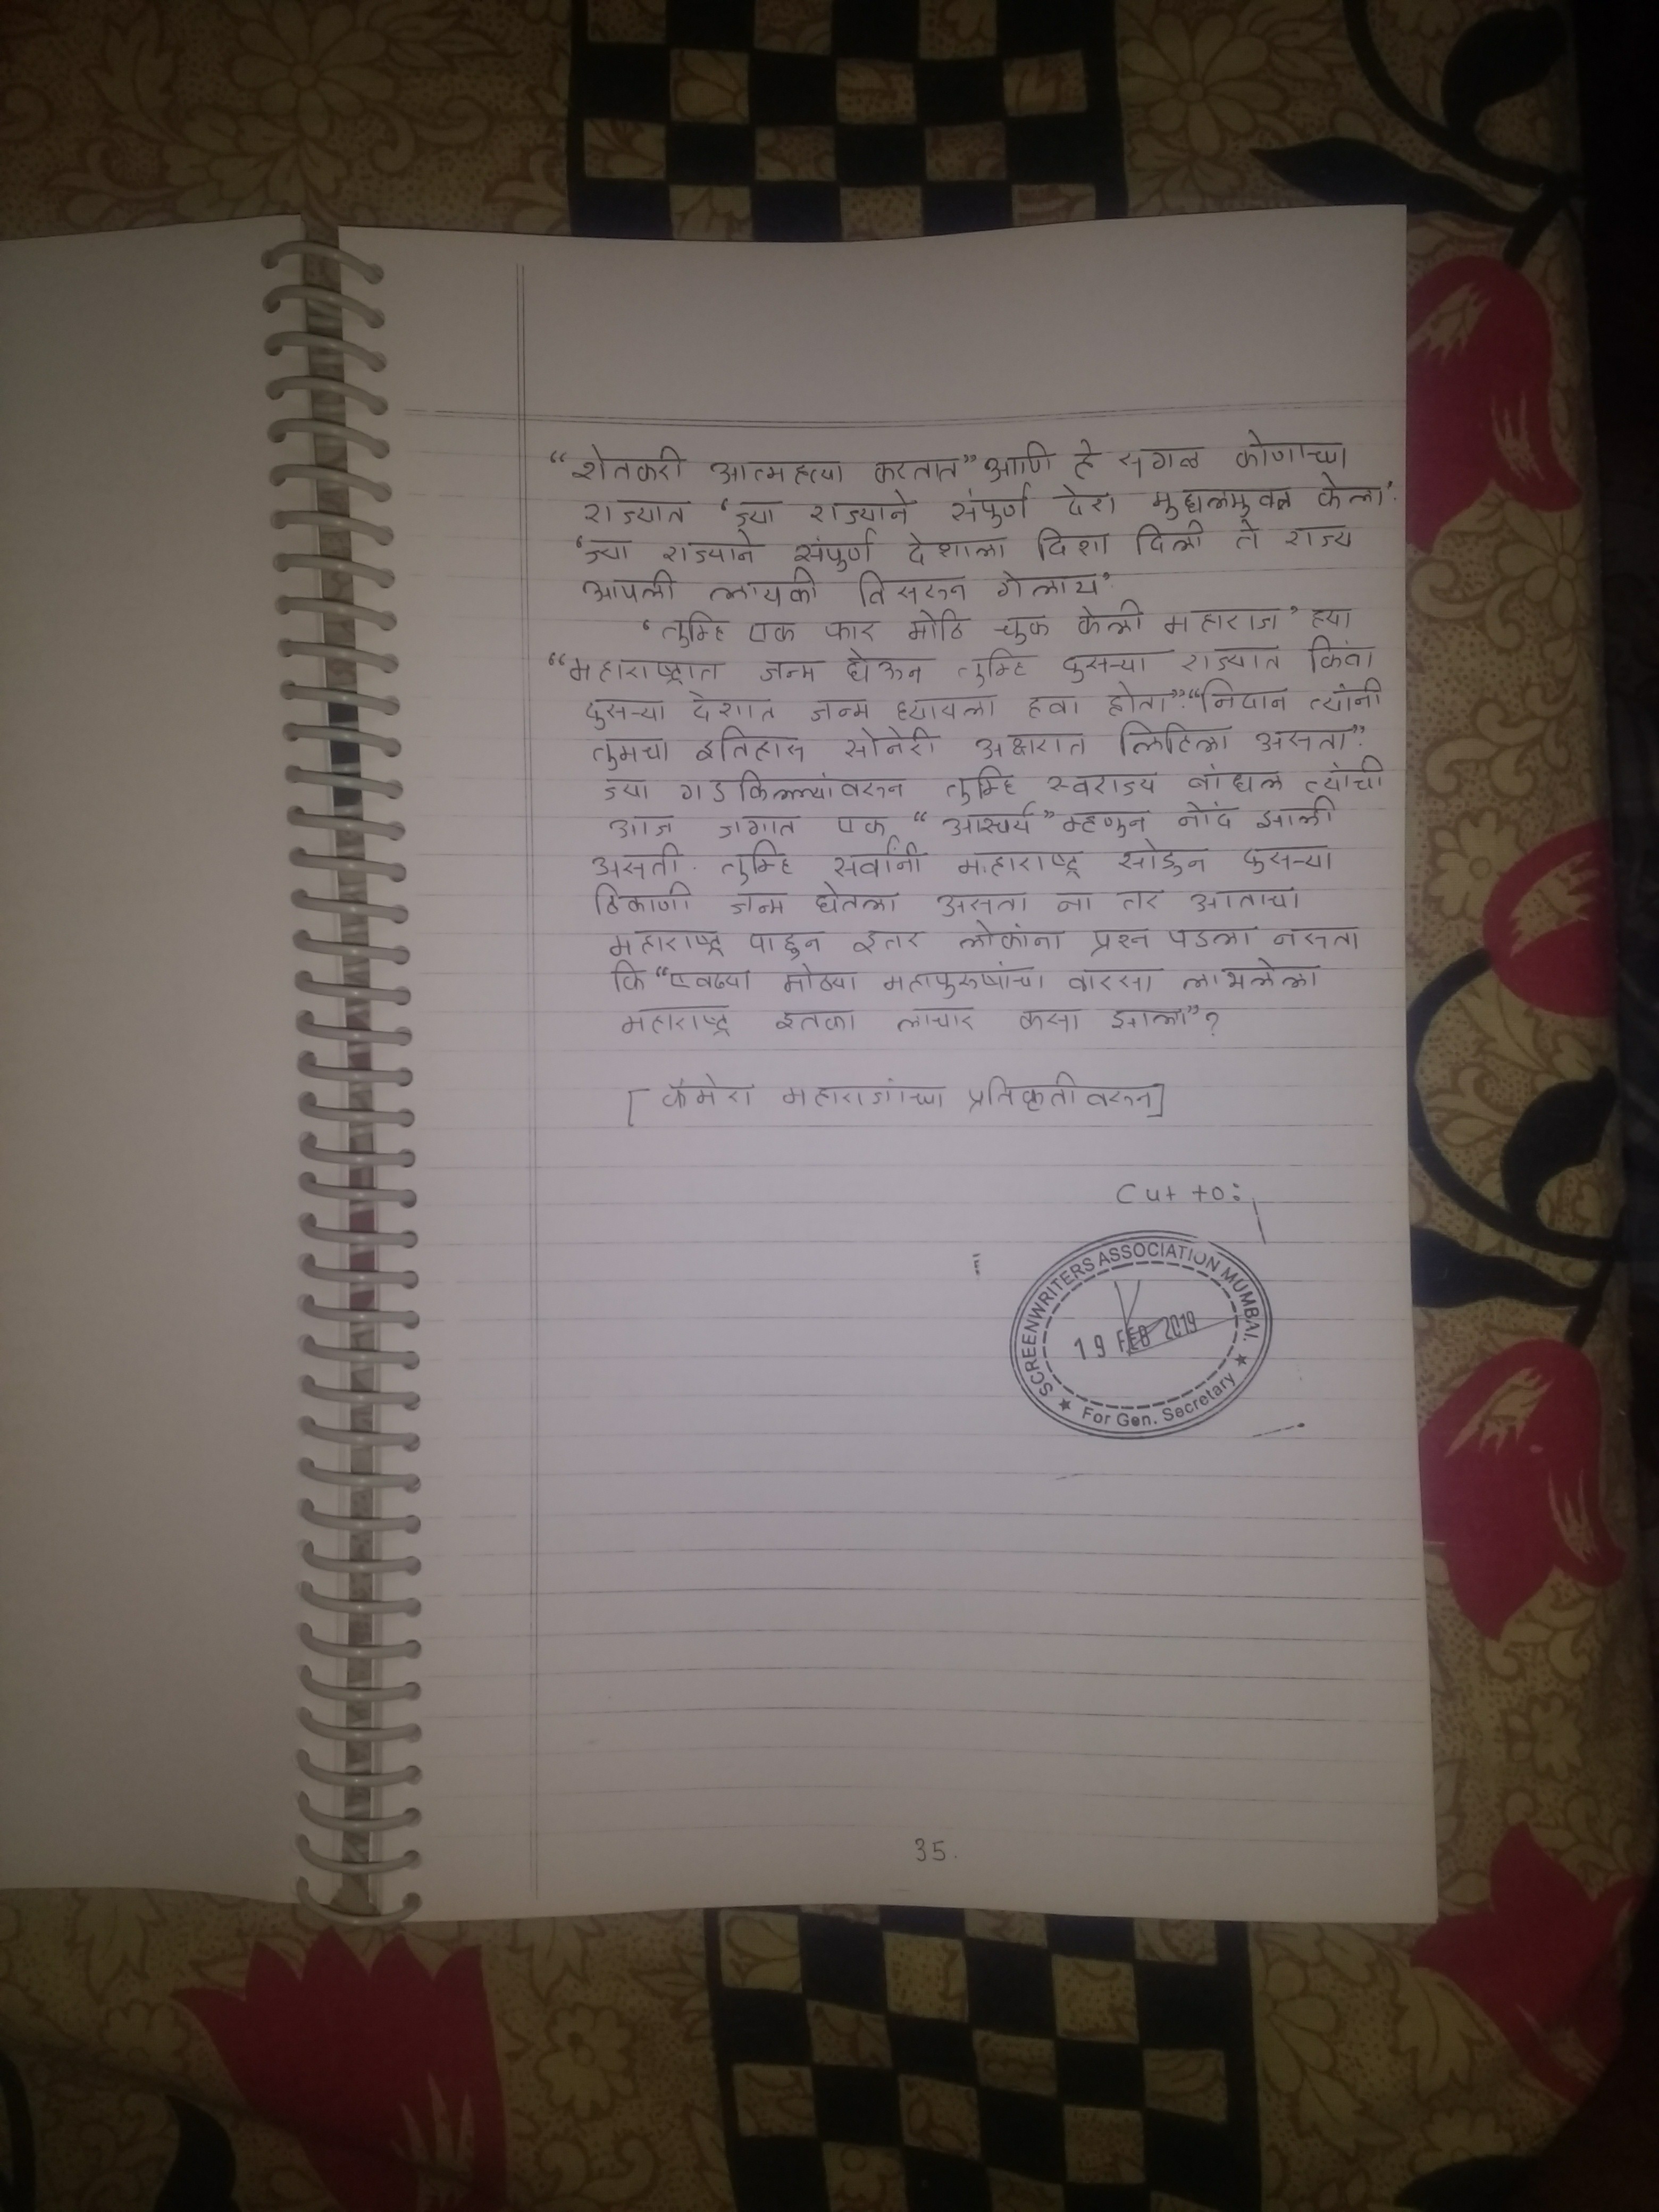 “शेतकरी आत्महत्या करतात” आणि हे सगळ कोणाच्या
राज्यात ‘ज्या राज्याने संपुर्ण देश मुघलमुक्त केला’.
‘ज्या राज्याने संपुर्ण देशाला दिशा दिली ते राज्य
आपली लायकी विसरुन गेलाय’
‘तुम्हि एक फार मोठि चुक केली महाराज’ ह्या
“महाराष्ट्रात जन्म घेऊन तुम्हि दुसऱ्या राज्यात किंवा
दुसऱ्या देशात जन्म घ्यायला हवा होता”. “निदान त्यांनी
तुमचा इतिहास सोनेरी अक्षरात लिहिला असता”.
ज्या गडकिल्ल्यांवरुन तुम्हि स्वराज्य बांधल त्यांची
आज जगात एक “आश्चर्य” म्हणुन नोंद झाली
असती. तुम्हि सर्वांनी महाराष्ट्र सोडुन दुसऱ्या
ठिकाणी जन्म घेतला असता ना तर आताचा
महाराष्ट्र पाहुन इतर लोकांना प्रश्न पडला नसता
कि “एवढ्या मोठ्या महापुरुषांचा वारसा लाभलेला
महाराष्ट्र इतका लाचार कसा झाला”?
[कॅमेरा महाराजांच्या प्रतिकृतीवरुन]
Cut to:
SCREENWRITERS ASSOCIATION MUMBAI.
19 FEB 2019
★ For Gen. Secretary ★
35.